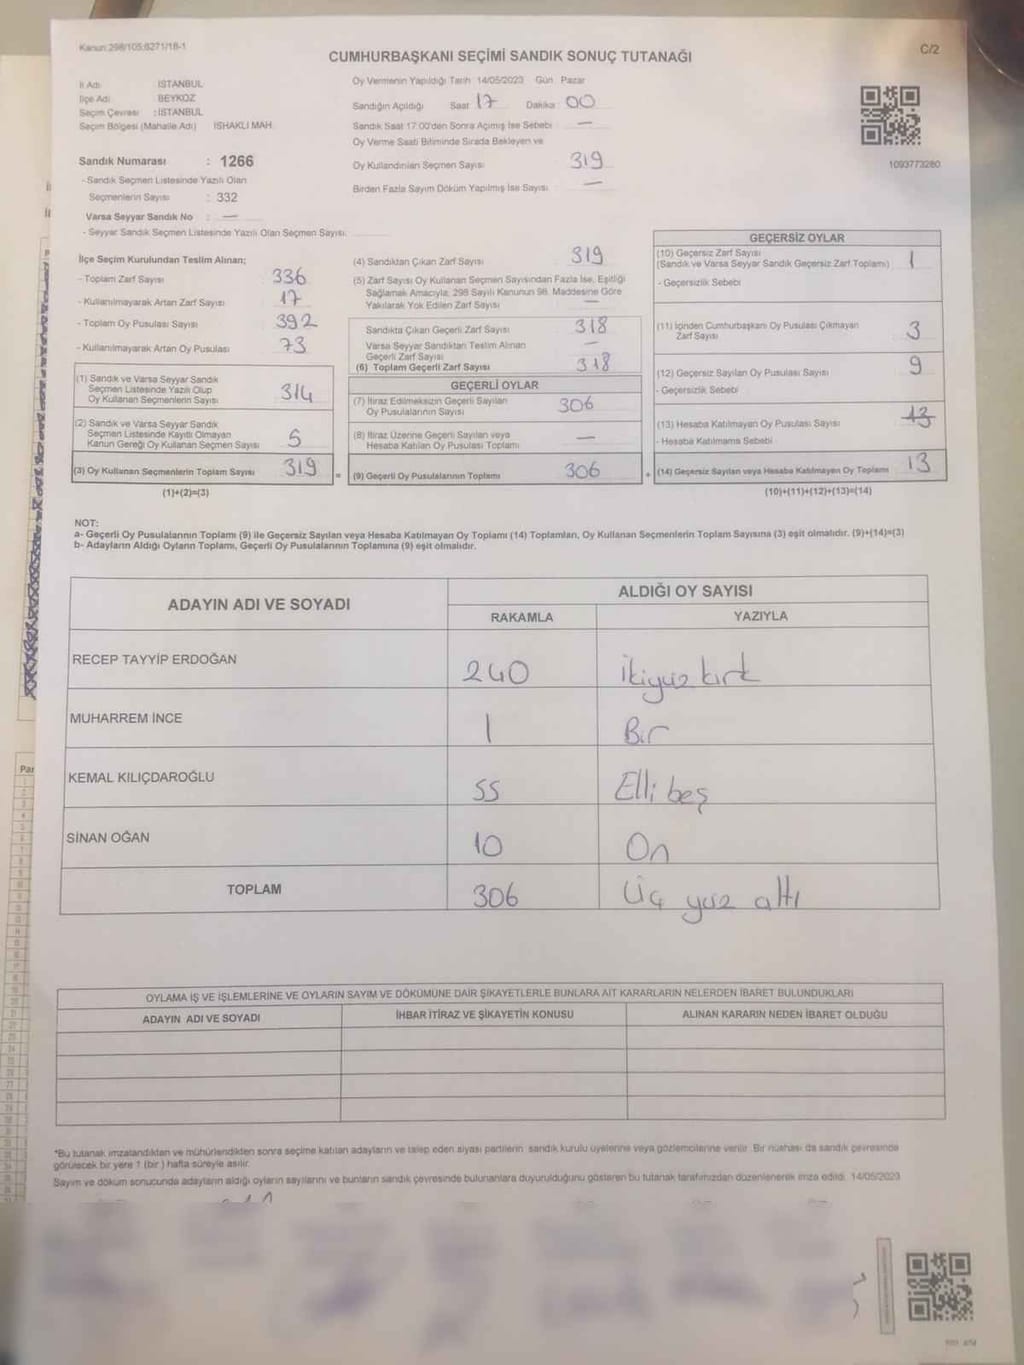 Kanun:298/105;6271/18-1
C/2
CUMHURBAŞKANI SEÇİMİ SANDIK SONUÇ TUTANAĞI
İl Adı : İSTANBUL
İlçe Adı : BEYKOZ
Seçim Çevresi : İSTANBUL
Seçim Bölgesi (Mahalle Adı) İSHAKLI MAH.
Sandık Numarası : 1266
- Sandık Seçmen Listesinde Yazılı Olan
Seçmenlerin Sayısı : 332
Varsa Seyyar Sandık No : —
- Seyyar Sandık Seçmen Listesinde Yazılı Olan Seçmen Sayısı:
Oy Vermenin Yapıldığı Tarih 14/05/2023 Gün Pazar
Sandığın Açıldığı Saat 17 Dakika 00
Sandık Saat 17:00'den Sonra Açılmış İse Sebebi —
Oy Verme Saati Bitiminde Sırada Bekleyen ve
Oy Kullandırılan Seçmen Sayısı 319
Birden Fazla Sayım Döküm Yapılmış İse Sayısı —
1093773280
İlçe Seçim Kurulundan Teslim Alınan;
- Toplam Zarf Sayısı 336
- Kullanılmayarak Artan Zarf Sayısı 17
- Toplam Oy Pusulası Sayısı 392
- Kullanılmayarak Artan Oy Pusulası 73
(1) Sandık ve Varsa Seyyar Sandık
Seçmen Listesinde Yazılı Olup
Oy Kullanan Seçmenlerin Sayısı 314
(2) Sandık ve Varsa Seyyar Sandık
Seçmen Listesinde Kayıtlı Olmayan
Kanun Gereği Oy Kullanan Seçmen Sayısı 5
(3) Oy Kullanan Seçmenlerin Toplam Sayısı 319 =
(1)+(2)=(3)
(4) Sandıktan Çıkan Zarf Sayısı 319
(5) Zarf Sayısı Oy Kullanan Seçmen Sayısından Fazla İse, Eşitliği
Sağlamak Amacıyla, 298 Sayılı Kanunun 98. Maddesine Göre
Yakılarak Yok Edilen Zarf Sayısı —
Sandıkta Çıkan Geçerli Zarf Sayısı 318
Varsa Seyyar Sandıktan Teslim Alınan
Geçerli Zarf Sayısı —
(6) Toplam Geçerli Zarf Sayısı 318
GEÇERLİ OYLAR
(7) İtiraz Edilmeksizin Geçerli Sayılan
Oy Pusulalarının Sayısı 306
(8) İtiraz Üzerine Geçerli Sayılan veya
Hesaba Katılan Oy Pusulası Toplamı —
(9) Geçerli Oy Pusulalarının Toplamı 306 +
GEÇERSİZ OYLAR
(10) Geçersiz Zarf Sayısı
(Sandık ve Varsa Seyyar Sandık Geçersiz Zarf Toplamı) 1
- Geçersizlik Sebebi
(11) İçinden Cumhurbaşkanı Oy Pusulası Çıkmayan
Zarf Sayısı 3
(12) Geçersiz Sayılan Oy Pusulası Sayısı 9
- Geçersizlik Sebebi
(13) Hesaba Katılmayan Oy Pusulası Sayısı 13
- Hesaba Katılmama Sebebi
(14) Geçersiz Sayılan veya Hesaba Katılmayan Oy Toplamı 13
(10)+(11)+(12)+(13)=(14)
NOT:
a- Geçerli Oy Pusulalarının Toplamı (9) ile Geçersiz Sayılan veya Hesaba Katılmayan Oy Toplamı (14) Toplamları, Oy Kullanan Seçmenlerin Toplam Sayısına (3) eşit olmalıdır. (9)+(14)=(3)
b- Adayların Aldığı Oyların Toplamı, Geçerli Oy Pusulalarının Toplamına (9) eşit olmalıdır.
ADAYIN ADI VE SOYADI
ALDIĞI OY SAYISI
RAKAMLA YAZIYLA
RECEP TAYYİP ERDOĞAN 240 İkiyüz kırk
MUHARREM İNCE 1 Bir
KEMAL KILIÇDAROĞLU 55 Elli beş
SİNAN OĞAN 10 On
TOPLAM 306 Üç yüz altı
OYLAMA İŞ VE İŞLEMLERİNE VE OYLARIN SAYIM VE DÖKÜMÜNE DAİR ŞİKAYETLERLE BUNLARA AİT KARARLARIN NELERDEN İBARET BULUNDUKLARI
ADAYIN ADI VE SOYADI İHBAR İTİRAZ VE ŞİKAYETİN KONUSU ALINAN KARARIN NEDEN İBARET OLDUĞU
*Bu tutanak imzalandıktan ve mühürlendikten sonra seçime katılan adayların ve talep eden siyasi partilerin sandık kurulu üyelerine veya gözlemcilerine verilir. Bir nüshası da sandık çevresinde
görülecek bir yere 1 (bir ) hafta süreyle asılır.
Sayım ve döküm sonucunda adayların aldığı oyların sayılarını ve bunların sandık çevresinde bulunanlara duyurulduğunu gösteren bu tutanak tarafımızdan düzenlenerek imza edildi. 14/05/2023